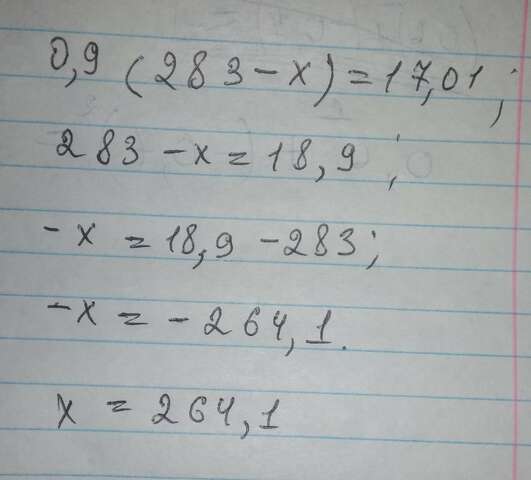 0,9 (283-x)=17,01;
283-x=18,9;
-x=18,9-283;
-x=-264,1.
x=264,1